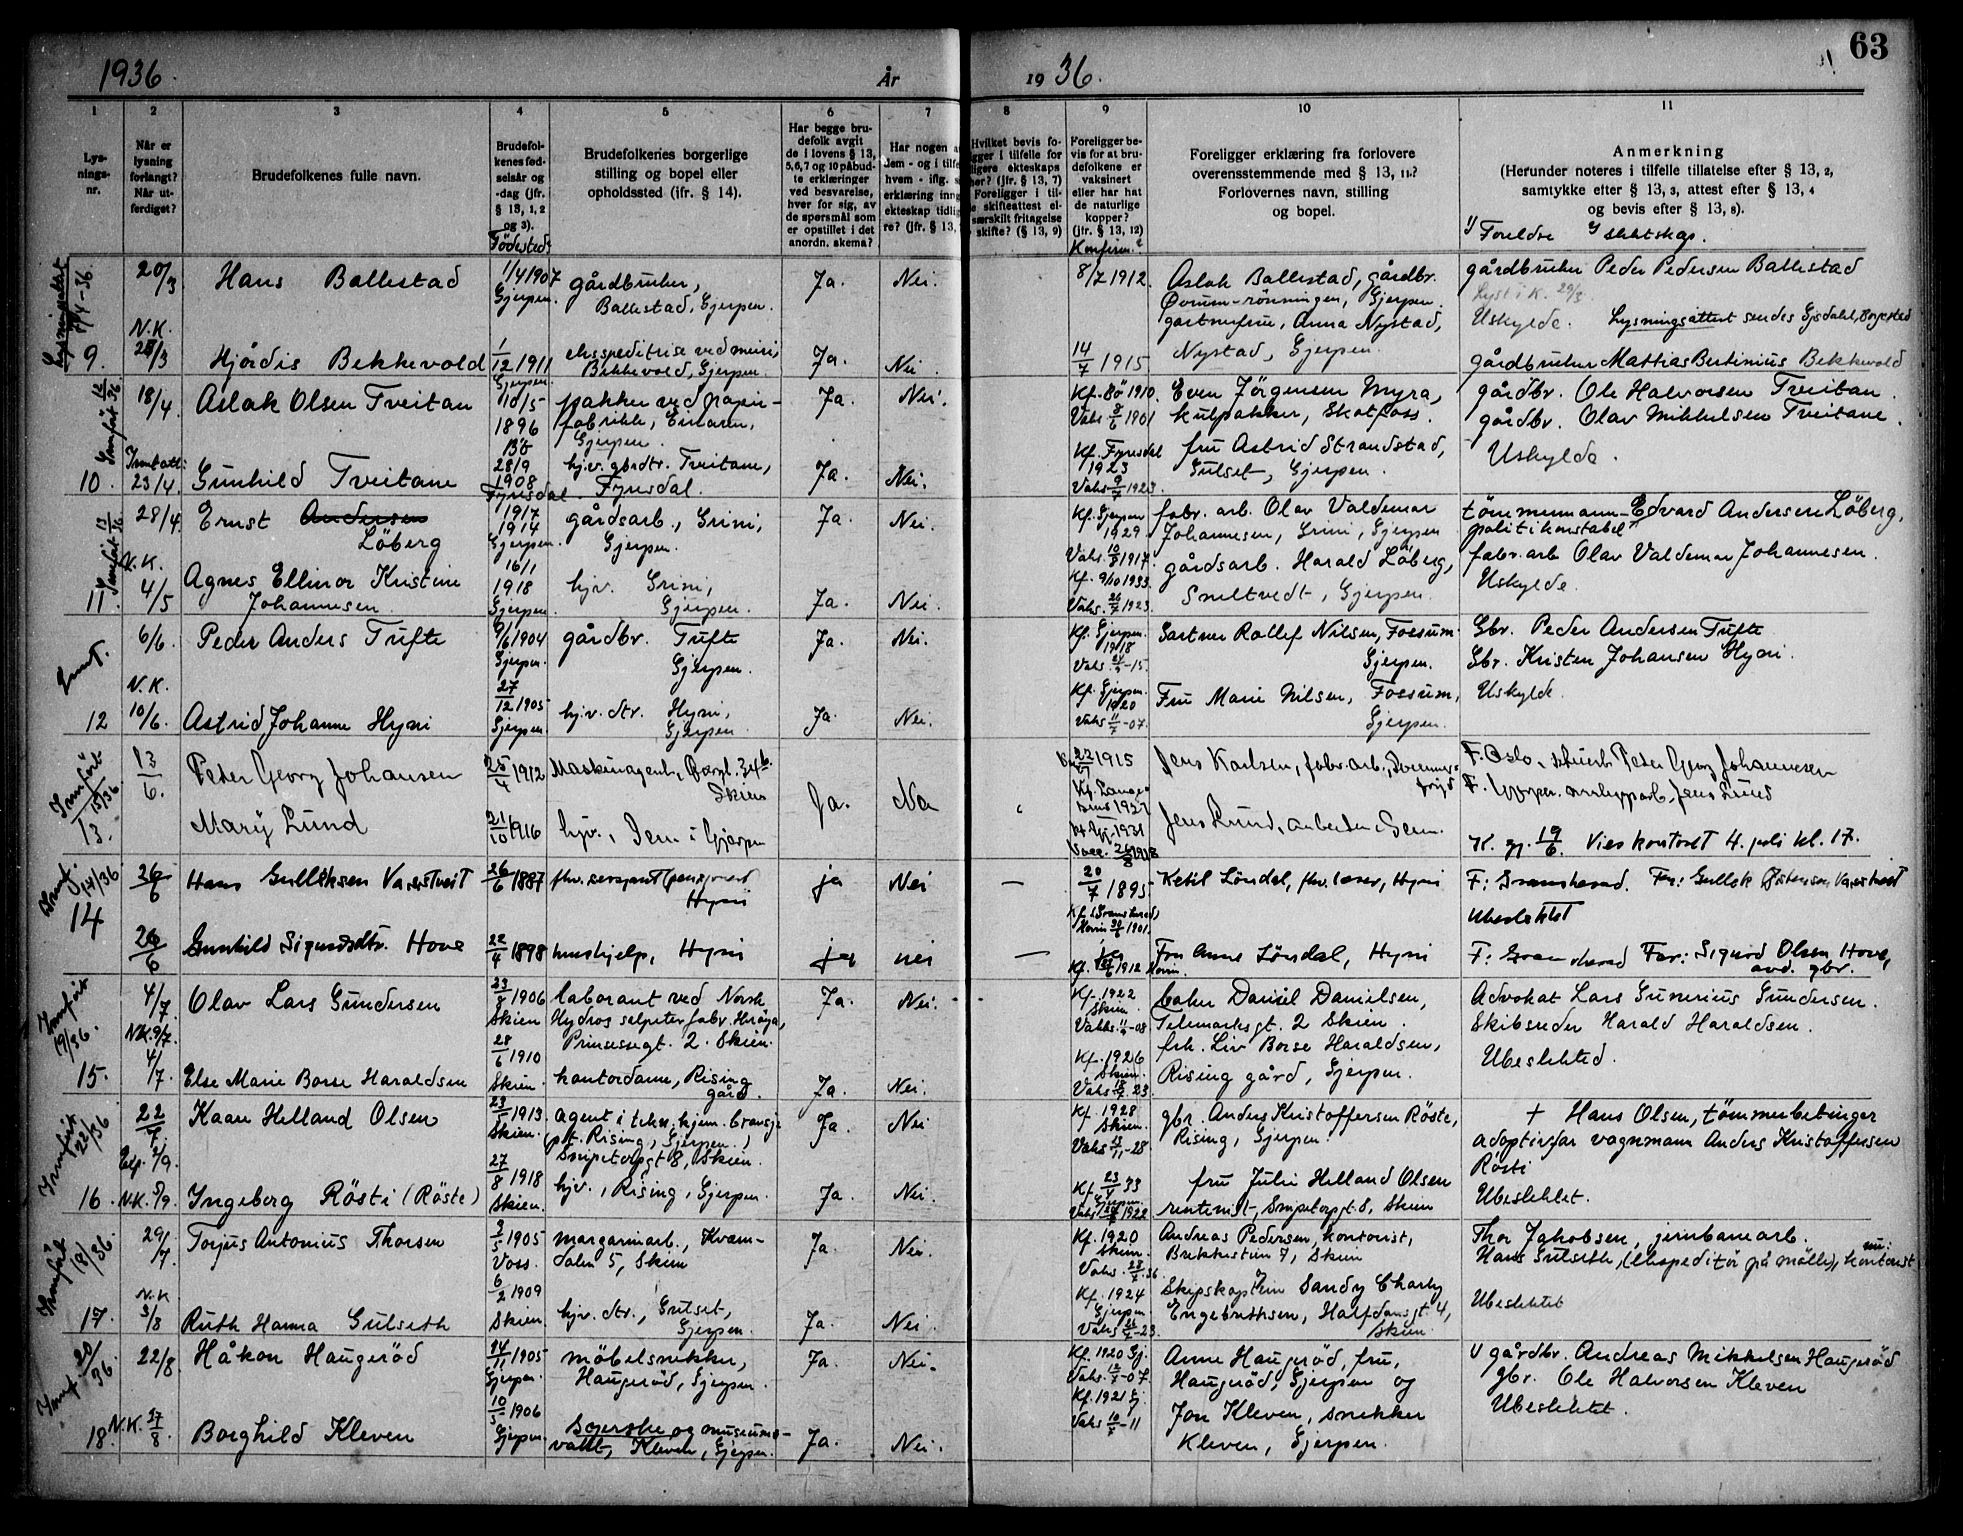 1936. År 1936. 63
1 2 3 4 5 6 7 8 9 10 11
Lys-
nings-
nr.
Når er
lysning
forlangt?
Når ut-
ferdiget?
Brudefolkenes fulle navn.
Brudefol-
kenes fød-
selsår og
-dag (jfr.
§ 13, 1, 2
og 3).
Fødested?
Brudefolkenes borgerlige
stilling og bopel eller
opholdssted (ifr. § 14).
Har begge bru-
defolk avgit
de i lovens § 13,
5,6,7 og 10 påbud-
te erklæringer
ved besvarelse,
hver for sig, av
de spørsmål som
er opstillet i det
anordn. skema?
Har nogen
dem - og i tilfe
hvem - iflg. s
erklæring inng
ekteskap tidlig
re? (jfr. § 13,
Hvilket bevis fo-
gger i tilfelle for
ligere ekteskaps
her? (jfr. § 13, 7)
Foreligger i til-
e skifteattest el-
særskilt fritagelse
skifte? (§ 13, 9)
Foreligger be-
vis for at bru-
defolkene er
vaksinert
eller har hat
de naturlige
kopper?
(jfr. § 13, 12)
Konfirm.?
Foreligger erklæring fra forlovere
overensstemmende med § 13, 11?
Forlovernes navn, stilling
og bopel.
Anmerkning
(Herunder noteres i tilfelle tillatelse efter § 13, 2,
samtykke efter § 13, 3, attest efter § 13, 4
og bevis efter § 13, 8).
1/ Foreldre Slektskap.
20/3 Hans Ballestad 1/4 1907 Gjerpen. gårdbruker, Ballestad, Gjerpen. Ja. Nei. 8/7 1912. Aslak Ballestad, gårdbr. gårdbruker Peder Pedersen Ballestad
Lyst i K. 29/3
N.K. Gjerpen. gartnerfrue, Anna Nystad, Uskylde. Lysningsattest sendes Gjsdahl, Borgestad
9. Hjørdis Bekkevold 1/12 1911 Gjerpen. ekspeditrise ved meieri, Bekkevold, Gjerpen. Ja. Nei. 14/7 1915 Nystad, Gjerpen. gårdbruker Mathias Bertinius Bekkevold
18/4 Aslak Olsen Tveitan 10/5 1896 Bø pakker ved papir-
fabrikk, Gjerpen. Ja. Nei. Kf. Bø 1910. Vaks. 1901 Even Jørgensen Myra,
kulpakker, Skotfoss. gårdbr. Ole Halvorsen Tveitan.
gårdbr. Olav Mikkelsen Tveitane.
10. 23/4. Gunhild Tveitane 28/9 1908 Fyresdal hjv. gbrdtr. Tveitane,
Fyresdal. Ja. Nei. Kf. Fyresdal 1923 Vaks. 1923. fru Astrid Strandstad,
Gulset, Gjerpen. Uskylde.
28/4 Ernst Andersen
Løberg 1914 Gjerpen. gårdsarb., Grini,
Gjerpen. Ja. Nei. Kf. Gjerpen 1929 Vaks. 1917. fabr. arb. Olav Valdemar
Johannesen, Grini, Gjerpen tømmermann Edvard Andersen Løberg,
politikonstabel
N.K. 11. 4/5 Agnes Ellinor Kristine
Johannesen 16/1 1918 Gjerpen. hjv. Grini,
Gjerpen. Ja. Nei. Kf. 9/10 1933. Vaks. 1923. gårdsarb. Harald Løberg,
Smeltvedt, Gjerpen. fabr. arb Olav Valdemar Johannesen.
Uskylde.
6/6. Peder Anders Tufte 9/6 1904 Gjerpen. gårdbr. Tufte
Gjerpen. Ja. Nei. Kf. Gjerpen 1918 Gartner Rollef Nilsen, Fossum
Gjerpen. Gbr. Peder Andersen Tufte
Gbr. Kristen Johansen Hyni.
N.K. 12 10/6. Astrid Johanne Hyni 27/12 1905 Gjerpen. hjv. dtr. Hyni,
Gjerpen. Ja. Nei. Kf. Gjerpen. 1920 Vaks. 11/-07. Fru Marie Nilsen, Fossum,
Gjerpen. Uskylde.
13/6. Peter Georg Johansen 25/4 1912 Maskinagent, 34b.
Skien Ja. Nei 1915 Jens Karlsen, fabr. arb., F. Oslo, Peter Georg Johannesen
13. Mary Lund 21/10 1916 hjv., i Gjerpen 1931 Vacc. 1918 Jens Lund, arbeider F. Gjerpen Jens Lund
K. gj. 19/6. Vies kontoret 4. juli kl. 17.
14 26/6 Hans Gulliksen Vaerstveit 26/6 1887 fhv. sersjant (pensjonert
Hyni ja Nei — 20/7 1895 Ketil Løndal, fhv. lærer, Hyni F: Gransherad. Far: Gullek Østensen Vaerstveit
Ubeslektet
26/6 Gunhild Sigurdsdtr. Hove 22/4 1898 hushjelp, Hyni ja nei — Kf. 1912 Fru Anne Løndal, Hyni F: Gransherad Far: Sigurd Olsen Hove,
gbr.
4/7 Olav Lars Gundersen 23/8 1906 Skien laborant ved Norsk
Hydros salpeterfabr. Herøya,
Prinsessegt. 2. Skien. Ja. Nei. Kf. 1922 Skien. Vaks. -08 baker Daniel Danielsen,
Telemarksgt. 2 Skien. Advokat Lars Gunerius Gundersen.
Skibsreder Harald Haraldsen.
N.K. 9/7. 15. 4/7. Else Marie Borse Haraldsen 28/6 1910 Skien. kontordame, Rising
gård. Ja. Nei. Kf. 1926 Skien. Vaks. 23. frk. Liv Borse Haraldsen,
Rising gård, Gjerpen. Ubeslektet.
22/7. Kaare Helland Olsen 23/ 1913 Skien. agent i bransje
(pt. Rising, Gjerpen.)
Snipetorpgt 8, Skien. Ja. Nei Kf. 1928 Skien. Vaks. -28 gbr. Anders Kristoffersen Røste,
Rising, Gjerpen. † Hans Olsen, tømmerbetinger
adoptivfar vognmann Anders Kristoffersen
Røsti
16. N.K. 5/9. Ingeborg Røsti (Røste) 27/8 1918 Skien. hjv., Rising, Gjerpen. Ja. Nei. Kf. 33 Gjerpen. Vaks. 1922 fru Julie Helland Olsen
rentenist, Snipetorpgt. 8, Skien Ubeslektet.
29/7. Torjus Antonius Thorsen 3/5 1905 Voss. margarinarb., Kvam-
dalen 5, Skien Ja. Nei. Kf. 1920 Skien. Vaks. 28/7.36 Andreas Pedersen, kontorist,
Brekkestien 7, Skien Thor Jakobsen, jernbanearb.
Hans Gulseth, (ekspeditør på mølle), nu: kontorist
N.K. 17. 3/8 Ruth Hanna Gulseth 6/2 1909 Skien hjv. dtr., Gulset,
Gjerpen. Ja. Nei. Kf. 1924 Gjerpen Vaks. -23. Skipskaptein Sandy Charly
Engebrethsen, Halfdansgt. 4,
Skien. Ubeslektet
22/8. Håkon Haugerød 14/11 1905 Gjerpen. møbelsnekker,
Haugerød, Gjerpen. Ja. Nei. Kf. 1920 Gj. Vaks. -07. Anne Haugerød, fru,
Haugerød, Gjerpen og 1/ gårdbr. Andreas Mikkelsen Haugerød
gbr. Ole Halvorsen Kleven
18. N.K. 27/8. Borghild Kleven 10/5 1906 Gjerpen. og museums-
vakt, Kleven, Gjerpen. Ja. Nei. Kf. 1921 Vaks. -11 Jon Kleven, snekker
Kleven, Gjerpen. Ubeslektet.